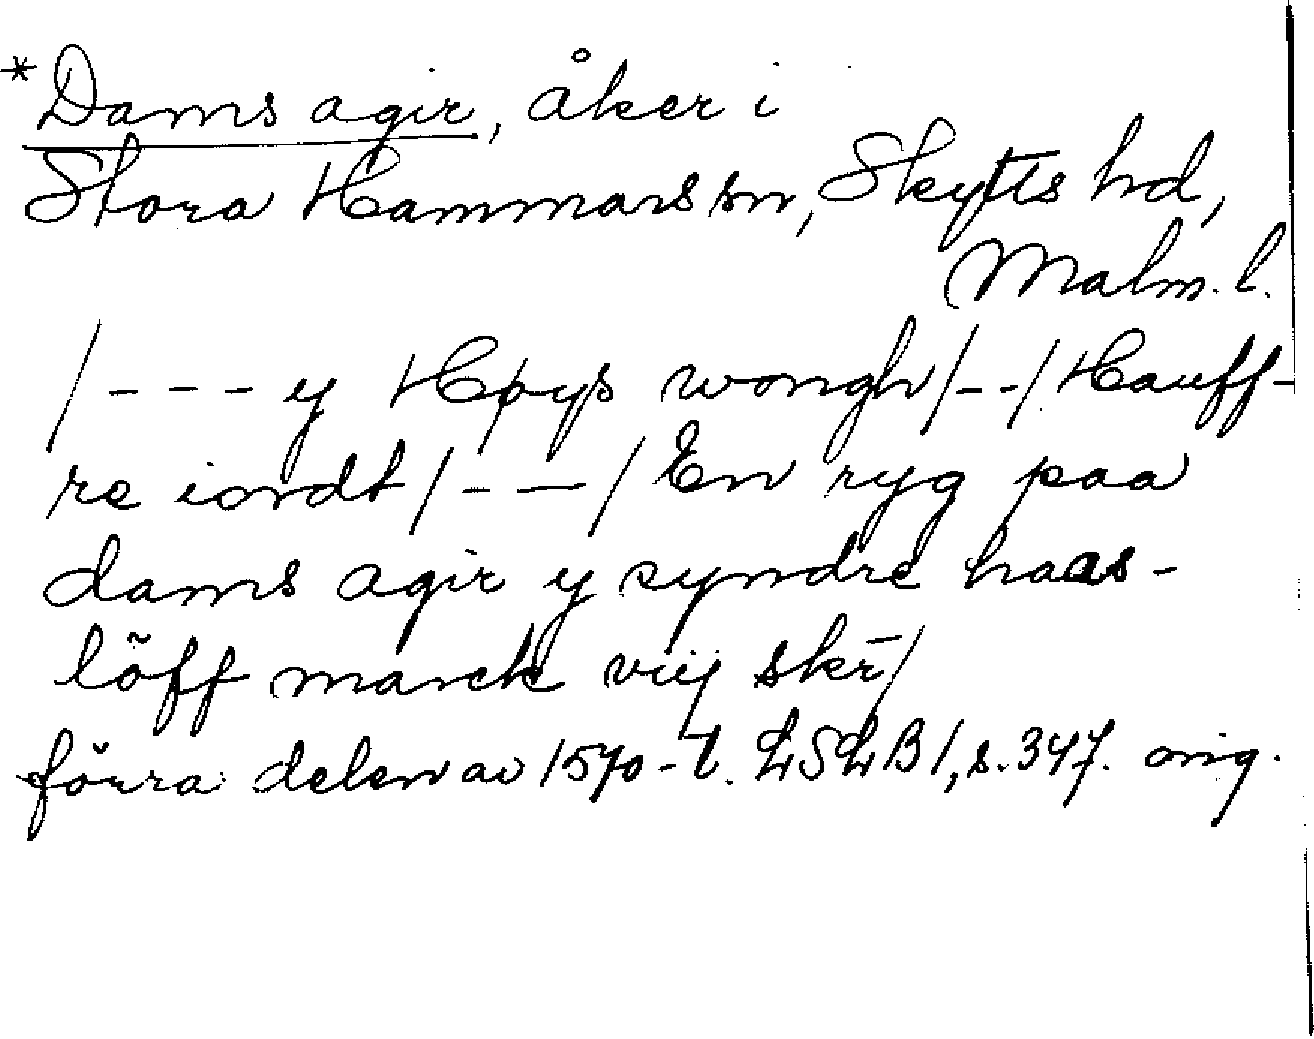 *Dams agir, åker i
Stora Hammars sn, Skytts hd,
Malm. l.
/- - - y Høys wongh/- -/ Hauff-
re iordt/- -/ En ryg paa
dams agir y syndre haas-
löff marck viij skr̄/
förra delen av 1570-t. LSLB 1, s. 347. orig.